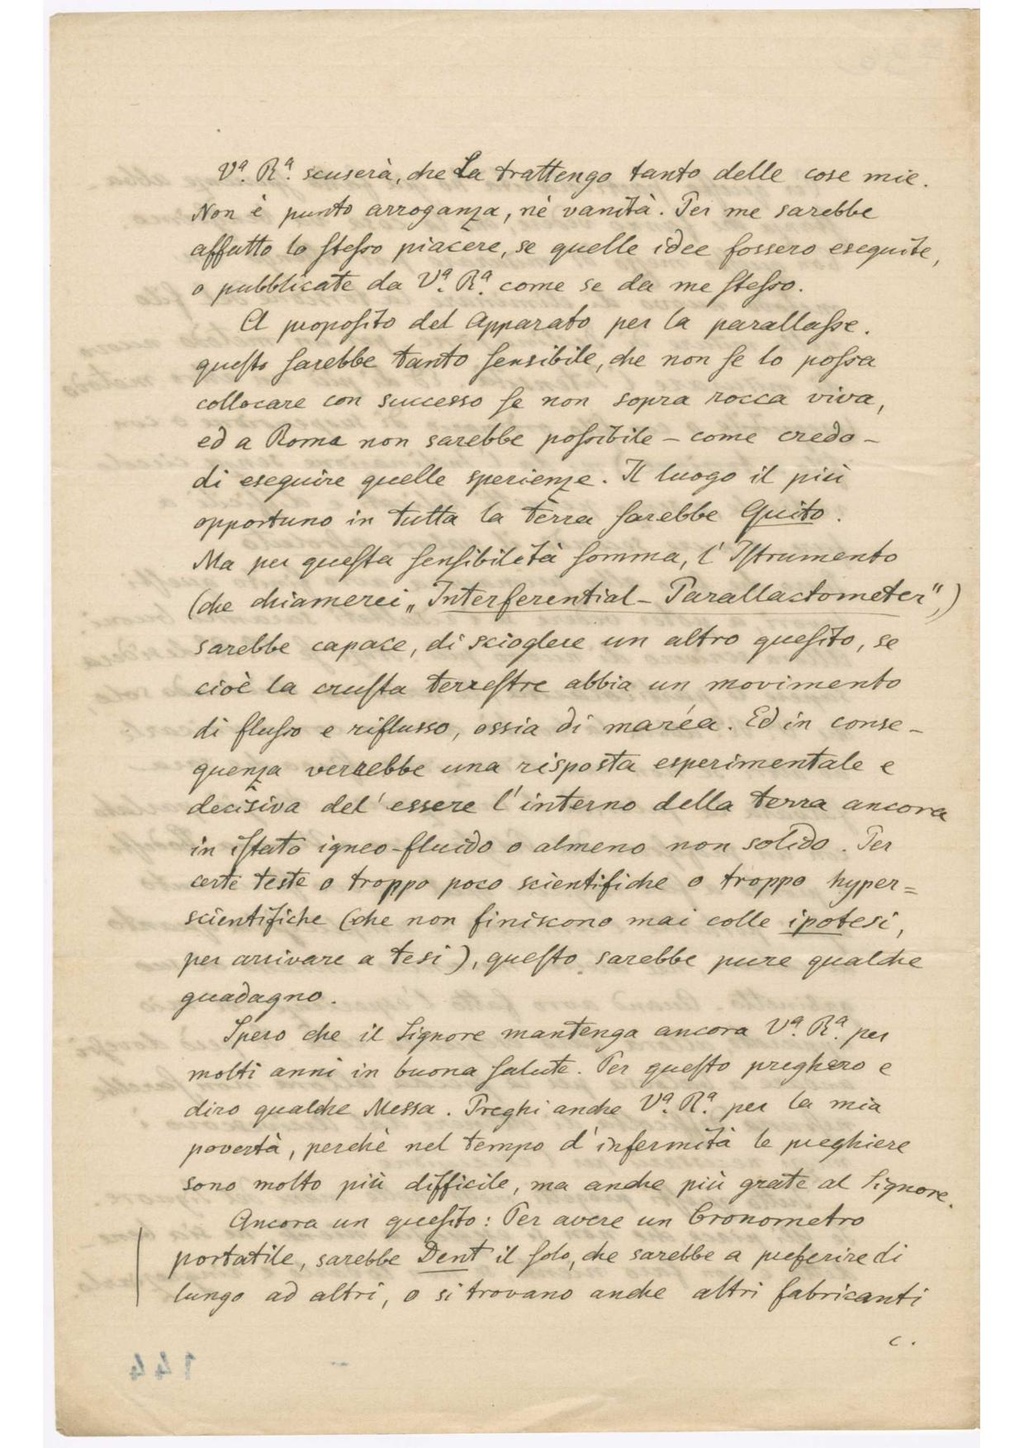 Vª. Rª. scuserà, che La trattengo tanto delle cose mie.
Non è punto arroganza, nè vanità. Per me sarebbe
affatto lo stesso piacere, se quelle idee fossero eseguite,
o pubblicate da Vª. Rª. come se da me stesso.
A proposito del Apparato per la parallasse.
questo sarebbe tanto sensibile, che non se lo possa
collocare con successo se non sopra rocca viva,
ed a Roma non sarebbe possibile – come credo –
di eseguire quelle sperienze. Il luogo il più
opportuno in tutta la terra sarebbe Quito.
Ma per questa sensibilità somma, l'Istrumento
(che chiamerei „Interferential-Parallactometer",)
sarebbe capace, di sciogliere un altro quesito, se
cioè la crusta terrestre abbia un movimento
di flusso e riflusso, ossia di maréa. Ed in conse-
quenza verrebbe una risposta esperimentale e
decisiva del' essere l'interno della terra ancora
in istato igneo-fluido o almeno non solido. Per
certe teste o troppo poco scientifiche o troppo hyper=
scientifiche (che non finiscono mai colle ipotesi,
per arrivare a tesi), questo sarebbe pure qualche
guadagno.
Spero che il Signore mantenga ancora Vª. Rª. per
molti anni in buona salute. Per questo pregherò e
dirò qualche Messa. Preghi anche Vª. Rª. per la mia
povertà, perchè nel tempo d'infermità le preghiere
sono molto più difficile, ma anche più grate al Signore.
Ancora un quesito: Per avere un Cronometro
portatile, sarebbe Dent il solo, che sarebbe a preferire di
lungo ad altri, o si trovano anche altri fabricanti
c.
144